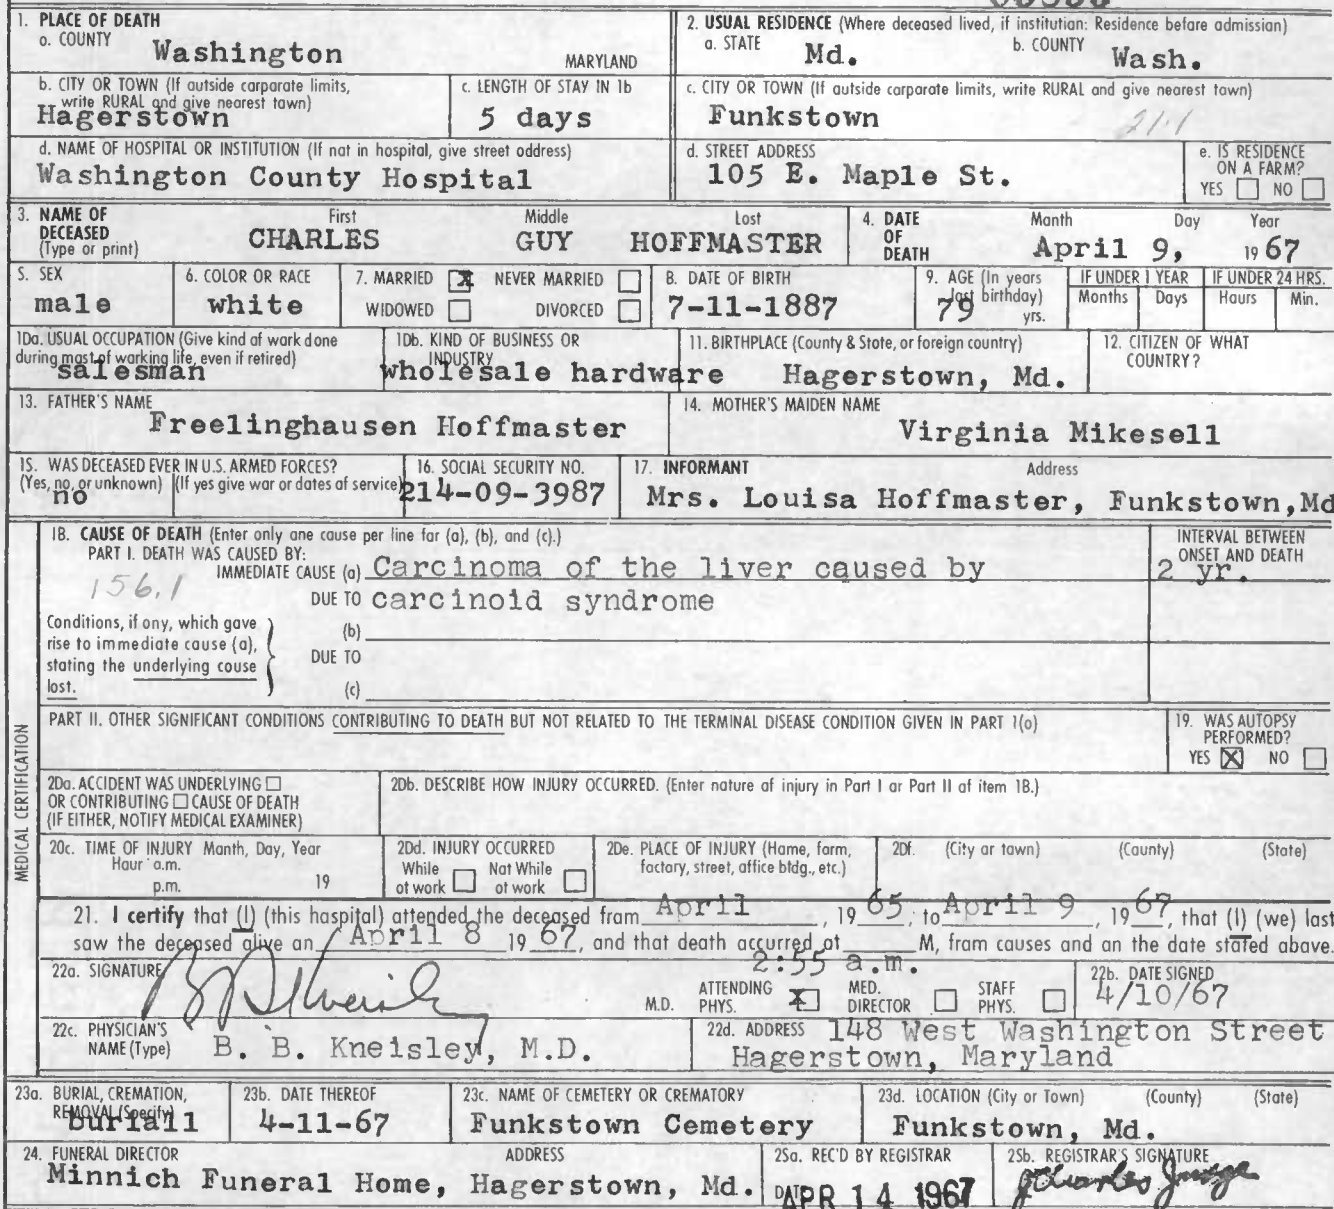 1. PLACE OF DEATH
a. COUNTY Washington MARYLAND
2. USUAL RESIDENCE (Where deceased lived, if institution: Residence before admission)
a. STATE Md. b. COUNTY Wash.
b. CITY OR TOWN (If outside corporate limits, write RURAL and give nearest town)
Hagerstown
c. LENGTH OF STAY IN 1b
5 days
c. CITY OR TOWN (If outside corporate limits, write RURAL and give nearest town)
Funkstown
21.1
d. NAME OF HOSPITAL OR INSTITUTION (If not in hospital, give street address)
Washington County Hospital
d. STREET ADDRESS
105 E. Maple St.
e. IS RESIDENCE ON A FARM?
YES NO
3. NAME OF DECEASED (Type or print)
First Middle Last
CHARLES GUY HOFFMASTER
4. DATE OF DEATH
Month Day Year
April 9, 1967
5. SEX
male
6. COLOR OR RACE
white
7. MARRIED X NEVER MARRIED
WIDOWED DIVORCED
8. DATE OF BIRTH
7-11-1887
9. AGE (In years last birthday)
79 yrs.
IF UNDER 1 YEAR
Months Days
IF UNDER 24 HRS.
Hours Min.
10a. USUAL OCCUPATION (Give kind of work done during most of working life, even if retired)
salesman
10b. KIND OF BUSINESS OR INDUSTRY
wholesale hardware
11. BIRTHPLACE (County & State, or foreign country)
Hagerstown, Md.
12. CITIZEN OF WHAT COUNTRY?
13. FATHER'S NAME
Freelinghausen Hoffmaster
14. MOTHER'S MAIDEN NAME
Virginia Mikesell
15. WAS DECEASED EVER IN U.S. ARMED FORCES?
(Yes, no, or unknown) (If yes give war or dates of service)
no
16. SOCIAL SECURITY NO.
214-09-3987
17. INFORMANT Address
Mrs. Louisa Hoffmaster, Funkstown, Md
MEDICAL CERTIFICATION
18. CAUSE OF DEATH (Enter only one cause per line for (a), (b), and (c).)
PART I. DEATH WAS CAUSED BY:
IMMEDIATE CAUSE (a) Carcinoma of the liver caused by
INTERVAL BETWEEN ONSET AND DEATH
2 yr.
156.1
DUE TO carcinoid syndrome
Conditions, if any, which gave rise to immediate cause (a), stating the underlying cause last.
(b)
DUE TO
(c)
PART II. OTHER SIGNIFICANT CONDITIONS CONTRIBUTING TO DEATH BUT NOT RELATED TO THE TERMINAL DISEASE CONDITION GIVEN IN PART I(a)
19. WAS AUTOPSY PERFORMED?
YES X NO
20a. ACCIDENT WAS UNDERLYING
OR CONTRIBUTING CAUSE OF DEATH
(IF EITHER, NOTIFY MEDICAL EXAMINER)
20b. DESCRIBE HOW INJURY OCCURRED. (Enter nature of injury in Part I or Part II of item 18.)
20c. TIME OF INJURY Month, Day, Year
Hour a.m.
p.m. 19
20d. INJURY OCCURRED
While at work Not While at work
20e. PLACE OF INJURY (Home, farm, factory, street, office bldg., etc.)
20f. (City or town) (County) (State)
21. I certify that (I) (this hospital) attended the deceased from April, 1965, to April 9 1967, that (I) (we) last
saw the deceased alive on April 8 1967, and that death occurred at M, from causes and on the date stated above.
2:55 a.m.
22a. SIGNATURE
M.D. ATTENDING PHYS. X MED. DIRECTOR STAFF PHYS.
22b. DATE SIGNED
4/10/67
22c. PHYSICIAN'S NAME (Type) B. B. Kneisley, M.D.
22d. ADDRESS 148 West Washington Street
Hagerstown, Maryland
23a. BURIAL, CREMATION, REMOVAL (Specify)
buriall
23b. DATE THEREOF
4-11-67
23c. NAME OF CEMETERY OR CREMATORY
Funkstown Cemetery
23d. LOCATION (City or Town) (County) (State)
Funkstown, Md.
24. FUNERAL DIRECTOR ADDRESS
Minnich Funeral Home, Hagerstown, Md.
25a. REC'D BY REGISTRAR
DATE APR 14 1967
25b. REGISTRAR'S SIGNATURE